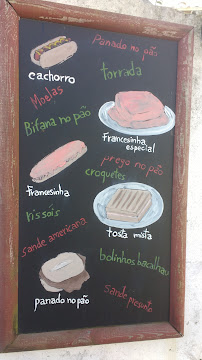 Panado no pão
cachorro
torrada
Moelas
Bifana no pão
Francesinha
especial
prego no pão
Francesinha
croquetes
rissóis
sande americana
tosta mista
bolinhos bacalhau
panado no pão
Sande presunto